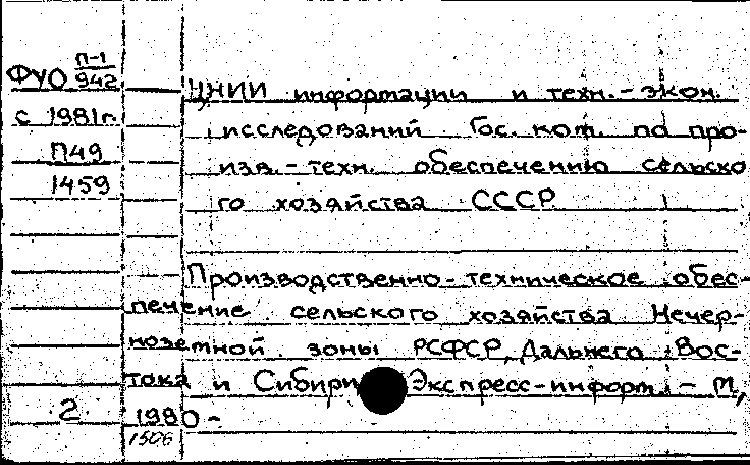 П-1
ФУО 942
с 1981г.
П49
1459
ЦНИИ информации и техн.-экон.
исследований Гос. ком. по про-
изв.-техн. обеспечению сельско
го хозяйства СССР
Производственно-техническое обес-
печение сельского хозяйства Нечер-
ноземной зоны РСФСР, Дальнего Вос-
тока и Сибири Экспресс-информ. - М.,
1980-
2
1506